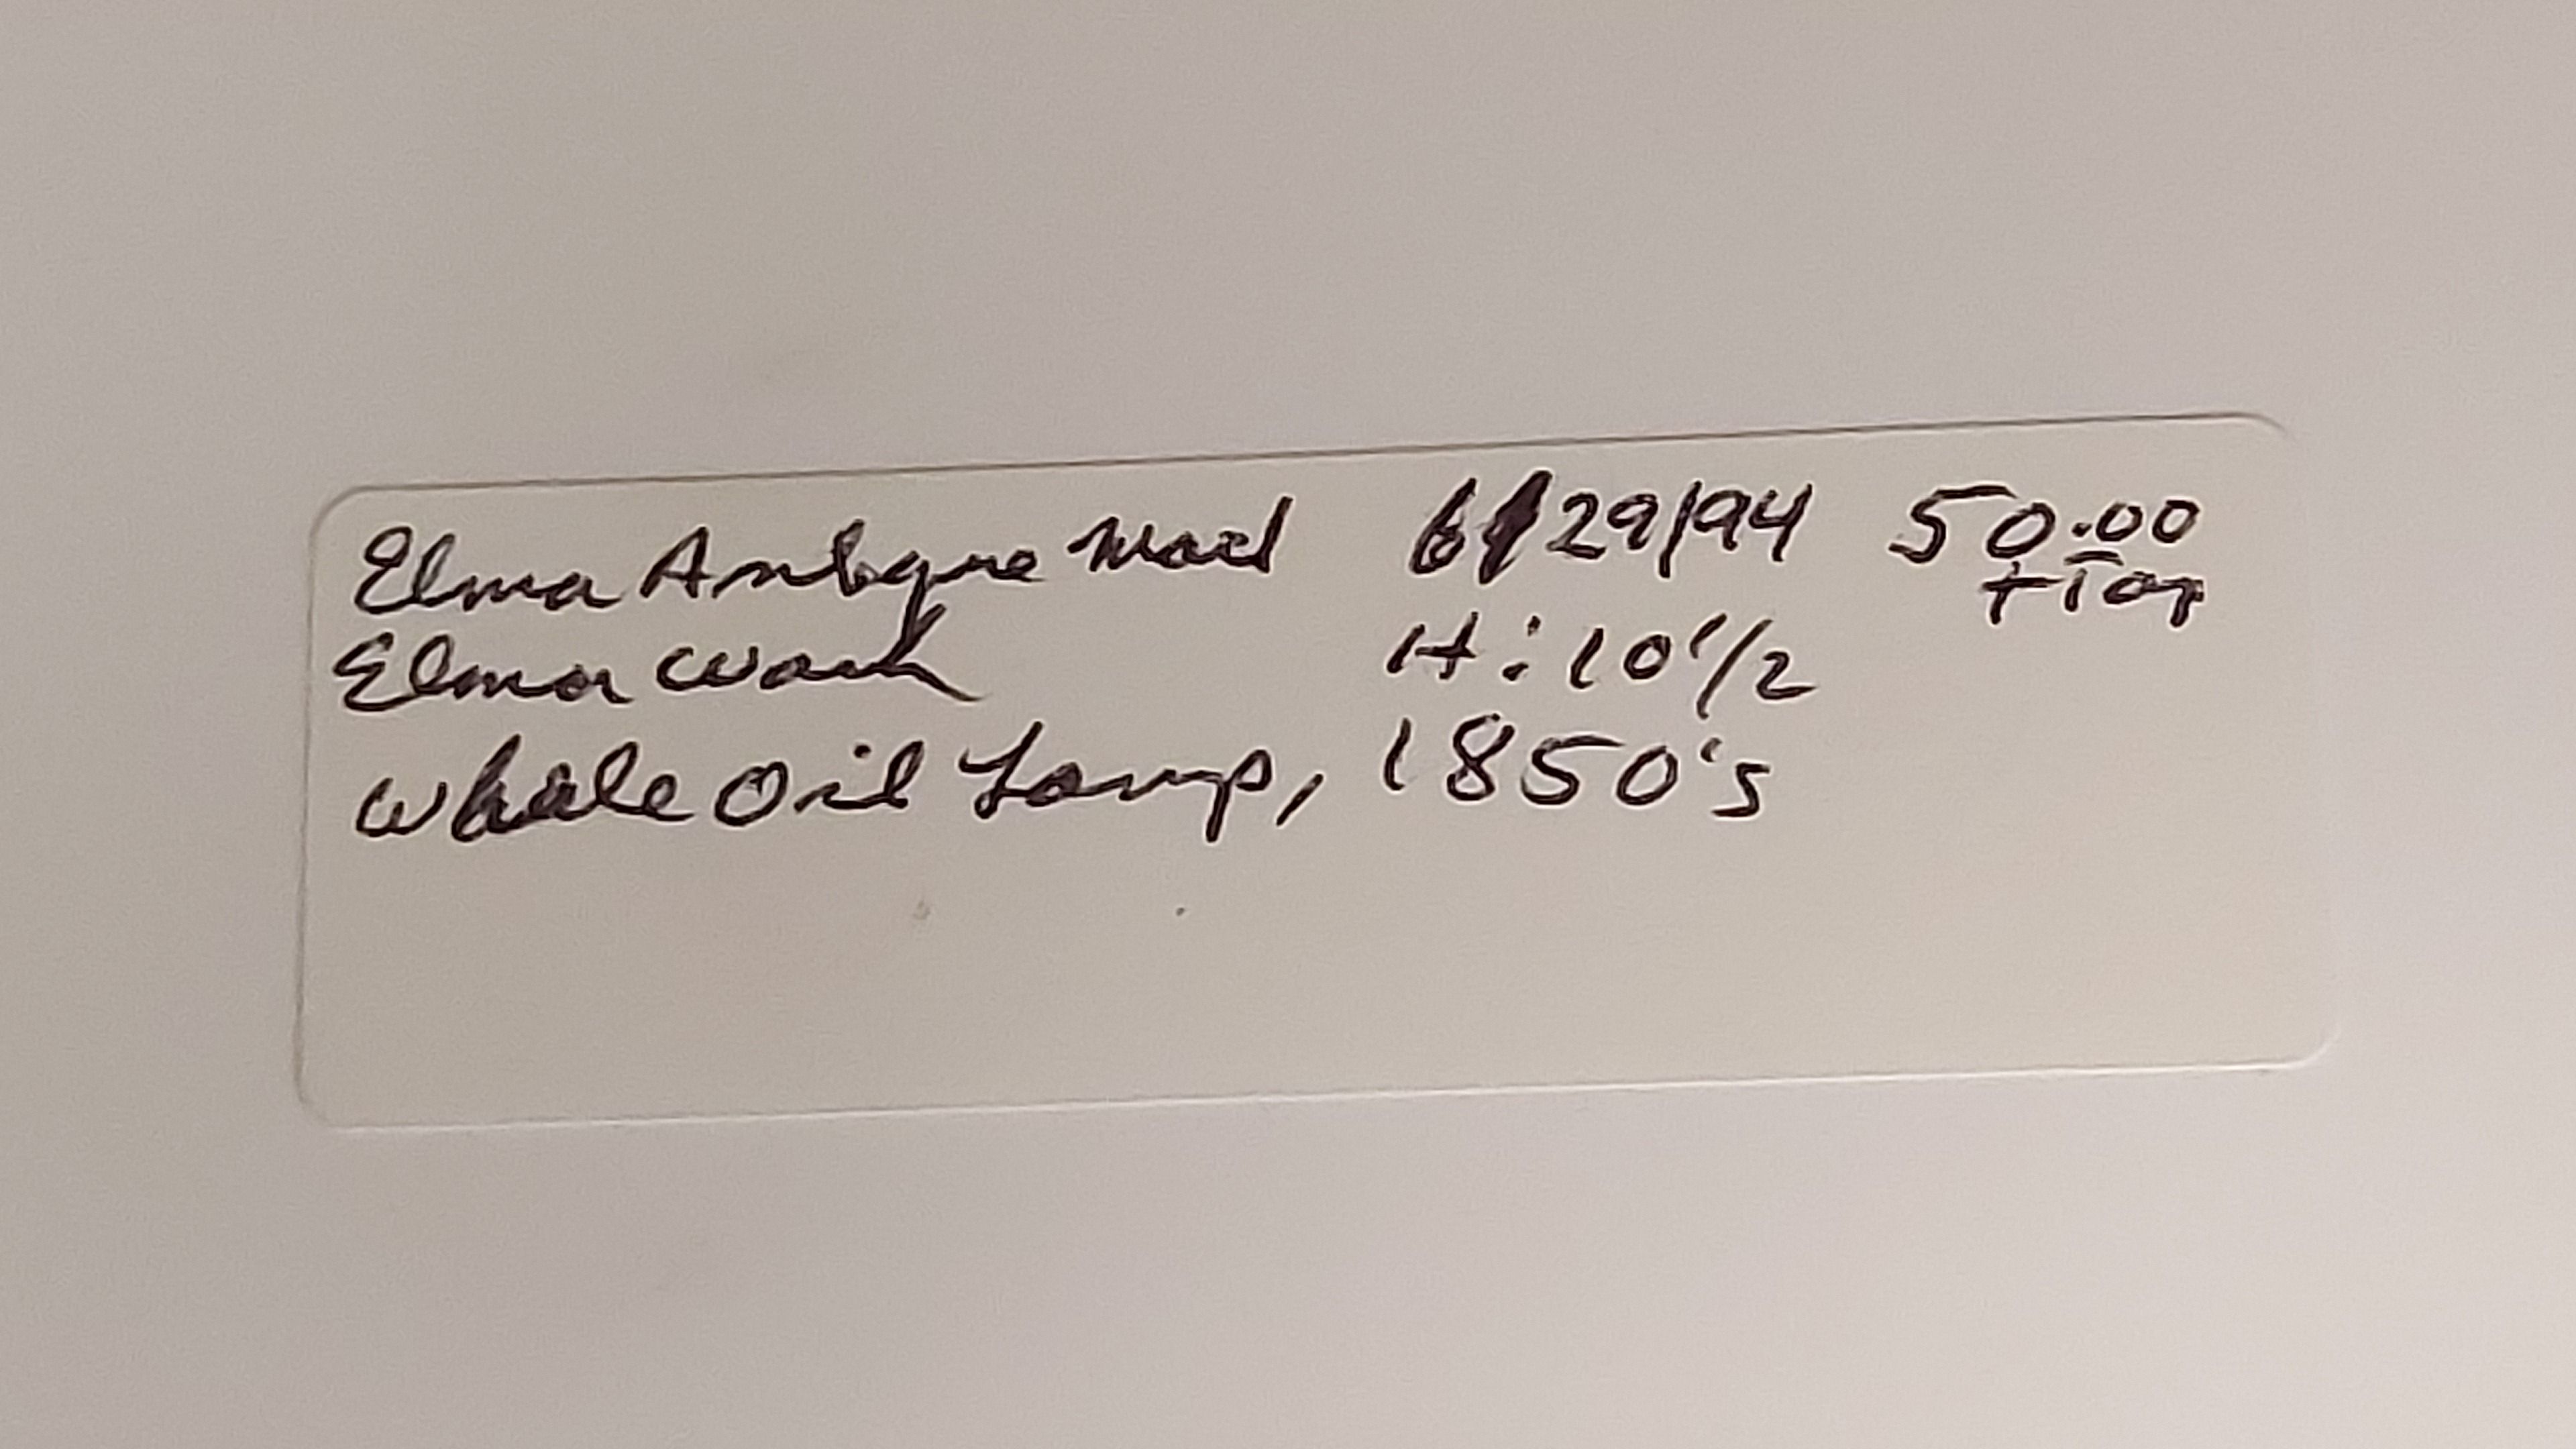 Elma Antique Mall 6/29/94 50.00
+Tax
Elma Wash H: 10 1/2
Whale Oil Lamp, 1850's